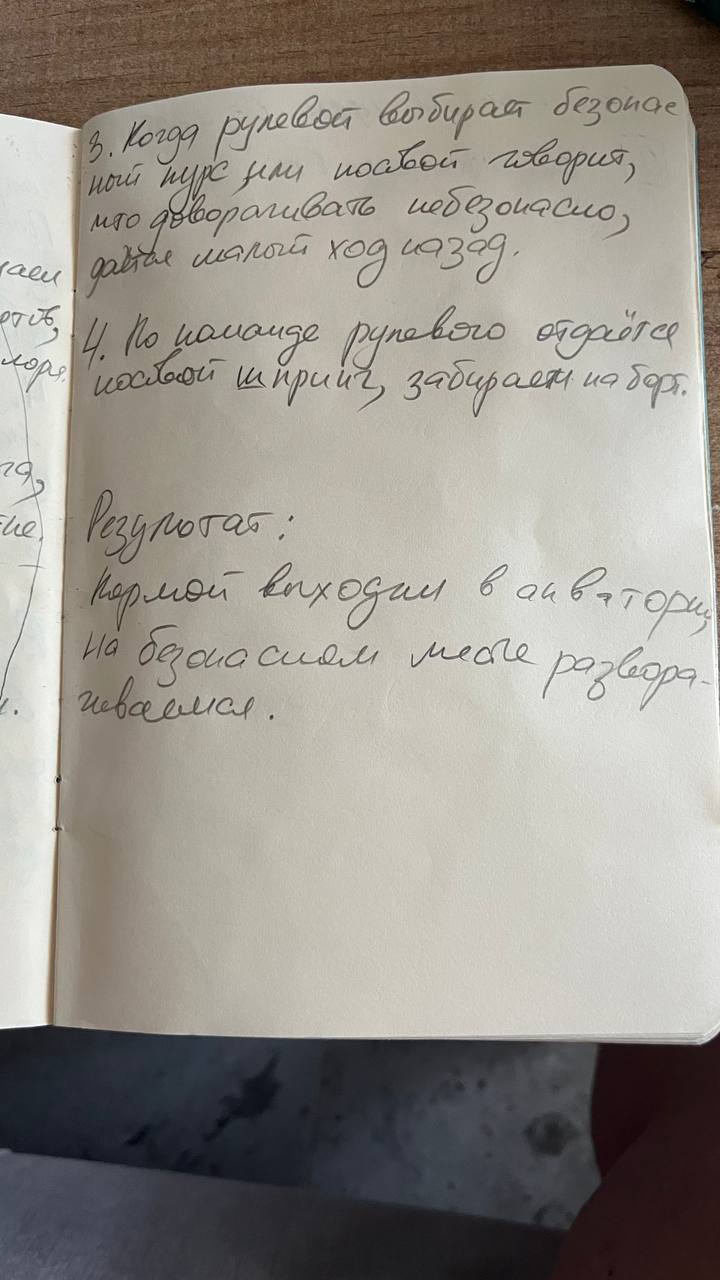 3. Когда рулевой выбирает безопас
ный курс или носовой говорит,
что доворачивать небезопасно,
даётся малый ход назад.
4. По команде рулевого отдаётся
носовой шпринг, забираем на борт.
Результат:
Кормой выходим в акваторию,
на безопасном месте развора-
чиваемся.